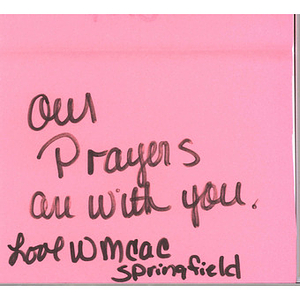 Our
Prayers
are with you.
Love WMCAC
Springfield